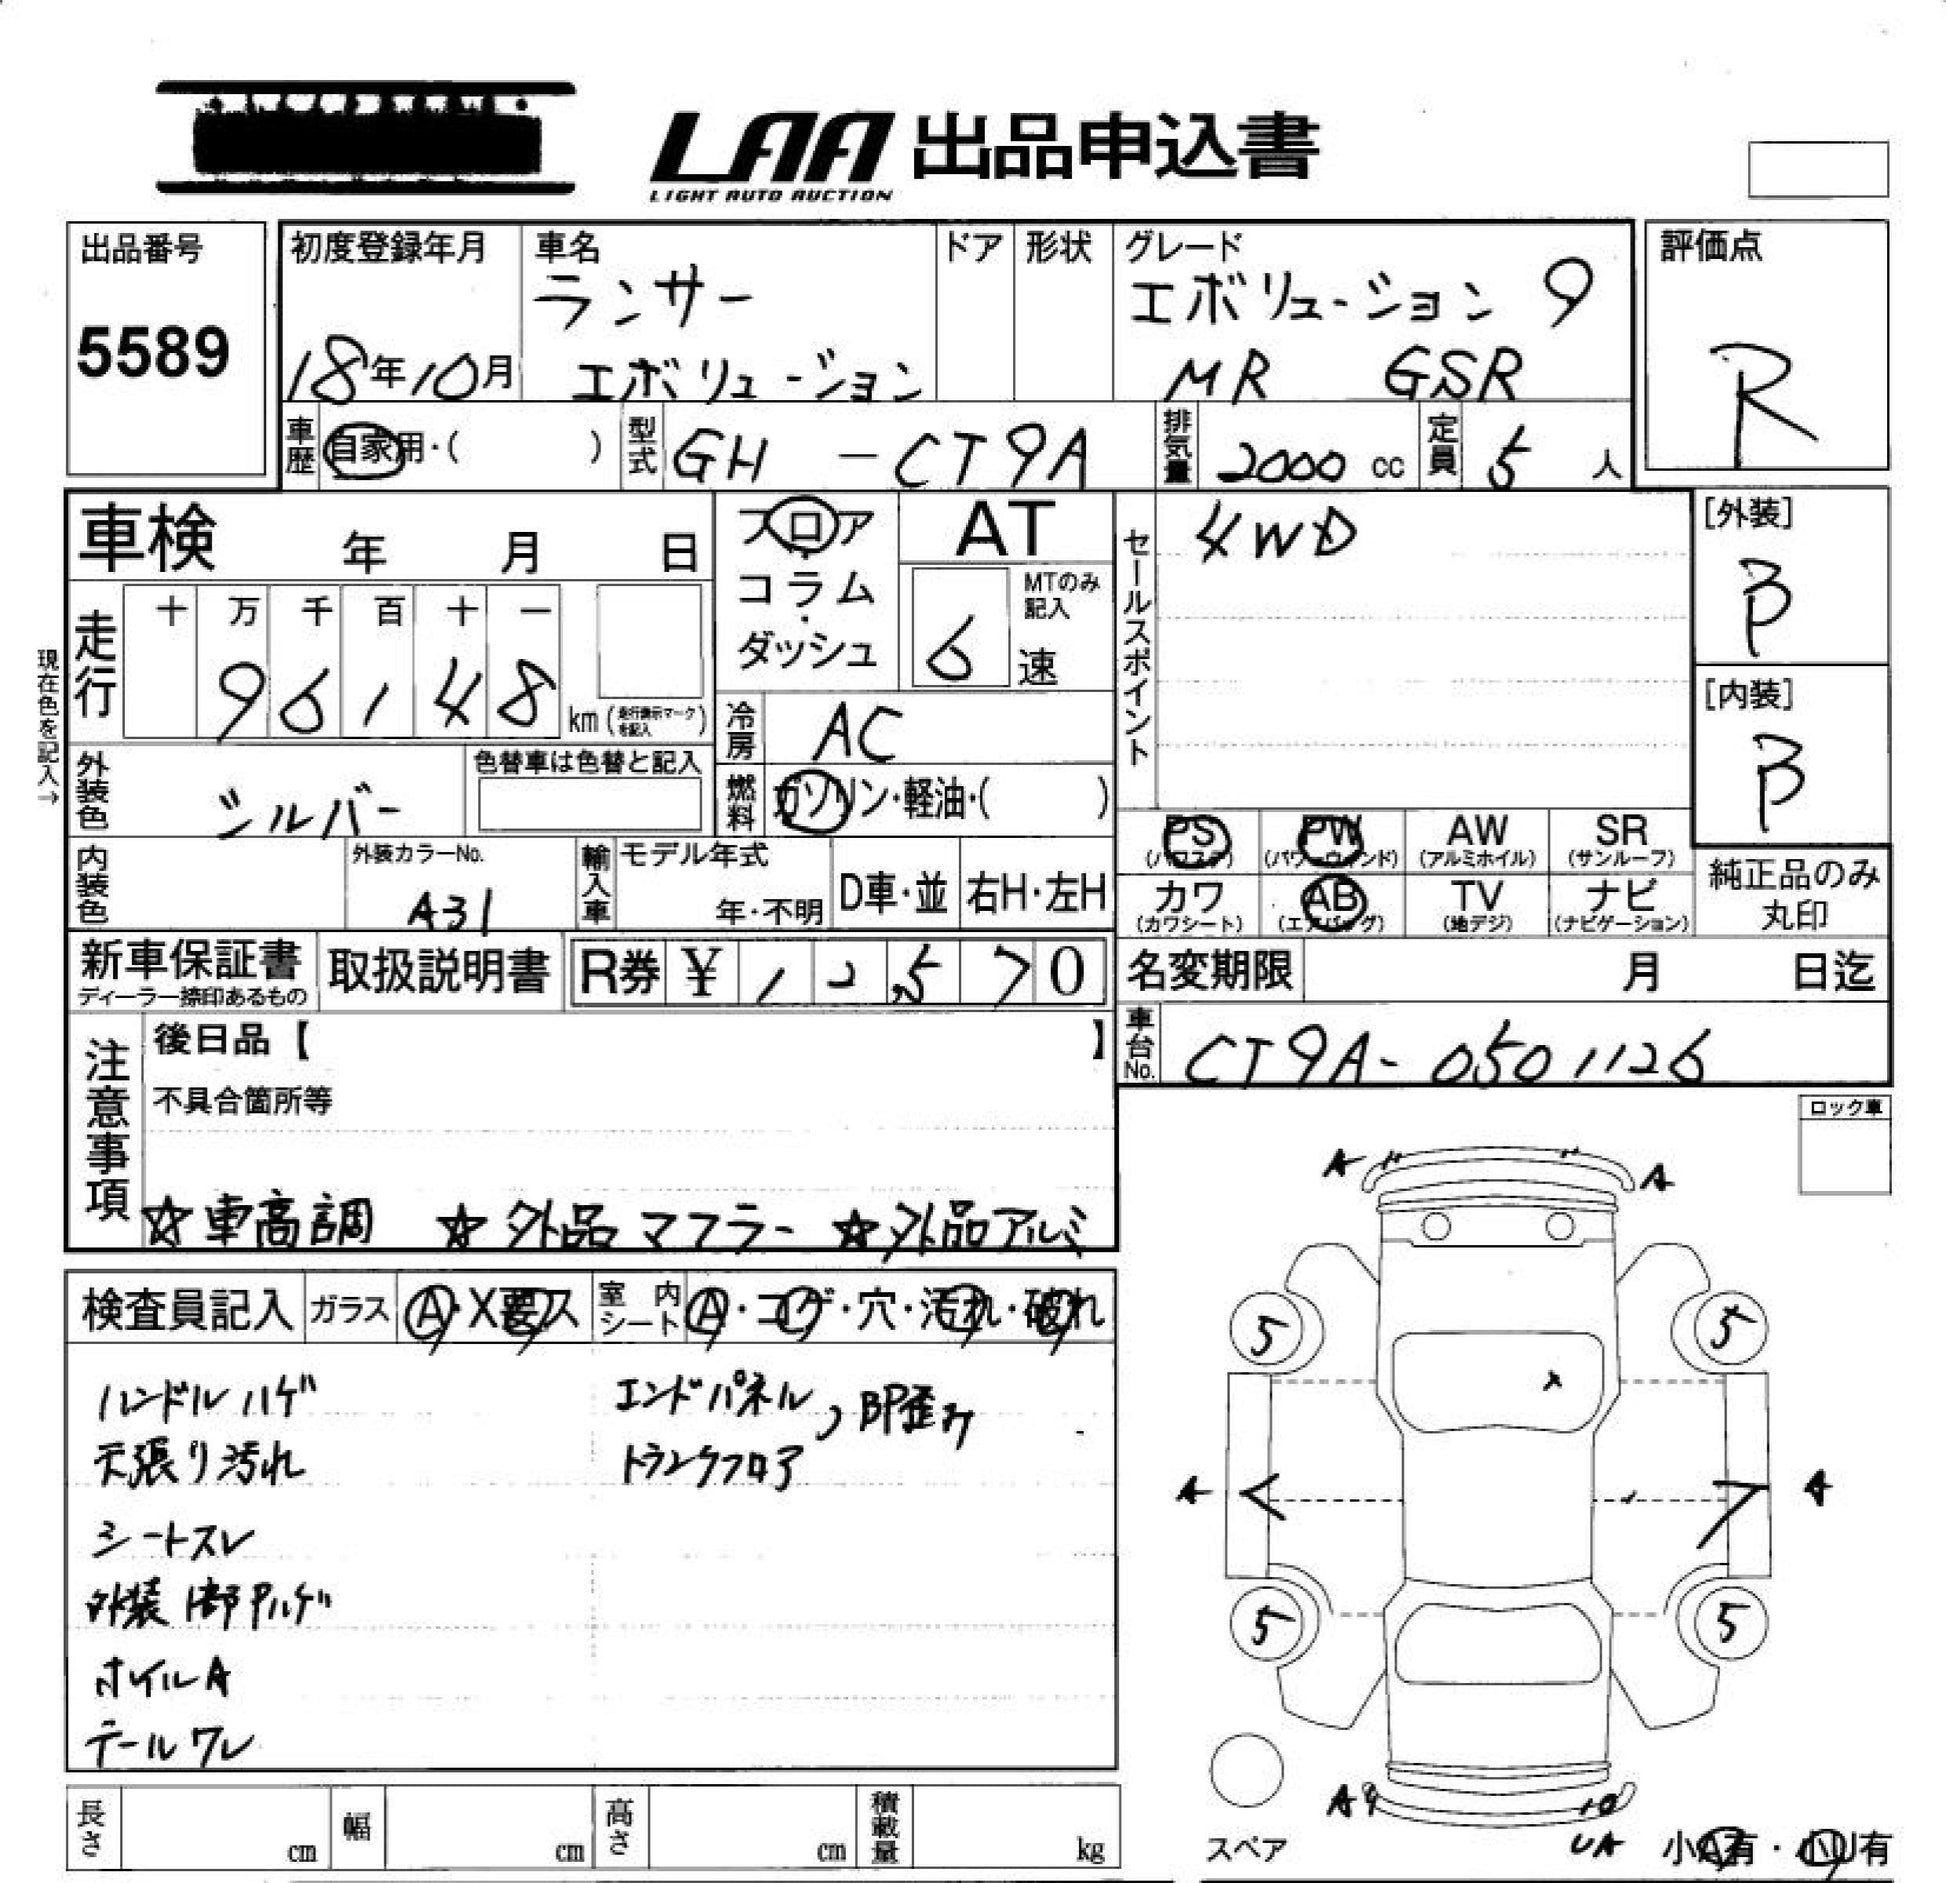 LAA 出品申込書
LIGHT AUTO AUCTION
出品番号
5589
初度登録年月
18年10月
車名
ランサー
エボリューション
ドア
形状
グレード
エボリューション 9
MR GSR
評価点
R
車歴
自家用・( )
型式
GH - CT9A
排気量
2000 cc
定員
5 人
車検 年 月 日
フロア・コラム・ダッシュ
AT
6 速
MTのみ記入
セールスポイント
4WD
[外装]
B
[内装]
B
現在色を記入→
走行
十 万 千 百 十 一
9 6 1 4 8
km (走行表示マークを記入)
冷房
AC
外装色
シルバー
色替車は色替と記入
燃料
ガソリン・軽油・( )
PS
(パワステ)
PW
(パワーウィンド)
AW
(アルミホイル)
SR
(サンルーフ)
カワ
(カワシート)
AB
(エアバッグ)
TV
(地デジ)
ナビ
(ナビゲーション)
純正品のみ
丸印
内装色
外装カラーNo.
A31
輸入車
モデル年式
年・不明
D車・並
右H・左H
新車保証書
ディーラー捺印あるもの
取扱説明書
R券 ¥ 1 2 5 7 0
名変期限 月 日迄
車台No.
CT9A-0501126
注意事項
後日品【 】
不具合箇所等
☆車高調 ☆外品マフラー ☆外品アルミ
ロック車
検査員記入
ガラス
A・X要ス
室内シート
A・コゲ・穴・汚れ・破れ
ハンドルハゲ
天張り汚れ
シートスレ
外装部ハゲ
ホイルA
テールワレ
エンドパネル
トランクフロア
,部歪み
A
A
5
5
A
A
5
5
A
UA
スペア
小A有・小U有
長さ cm
幅 cm
高さ cm
積載量 kg